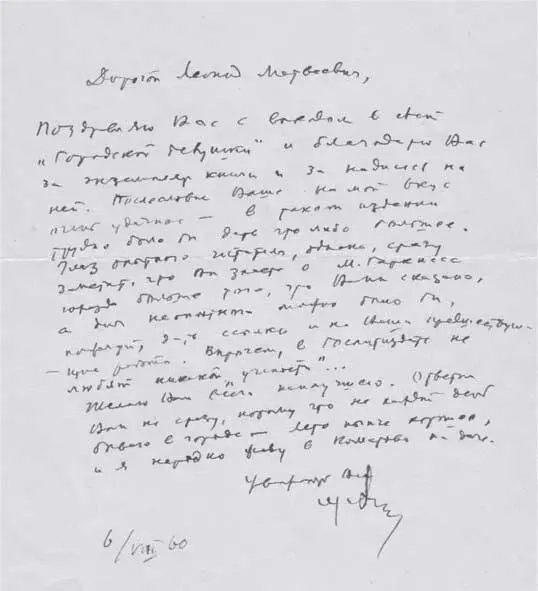 Дорогой Леонид Матвеевич,
Поздравляю Вас с выходом в свет
„Городской девушки" и благодарю Вас
за экземпляр книги и за надпись на
ней. Послесловие Ваше на мой вкус
очень удачное — в таком издании
трудно было бы дать что-либо большее.
Глаз опытного читателя, однако, сразу
заметит, что Вы знаете о М. Гаркнесс
гораздо больше того, что Вами сказано,
а для неопытных можно было бы,
пожалуй, дать ссылки и на Ваши предшествую-
щие работы. Впрочем, в Гослитиздате не
любят никакой „учености"...
Желаю Вам всего наилучшего. Ответил
Вам не сразу, потому что не каждый день
бываю в городе — лето нынче хорошее,
и я нередко живу в Комарове на даче.
Уважающий Вас
6/VIII 60